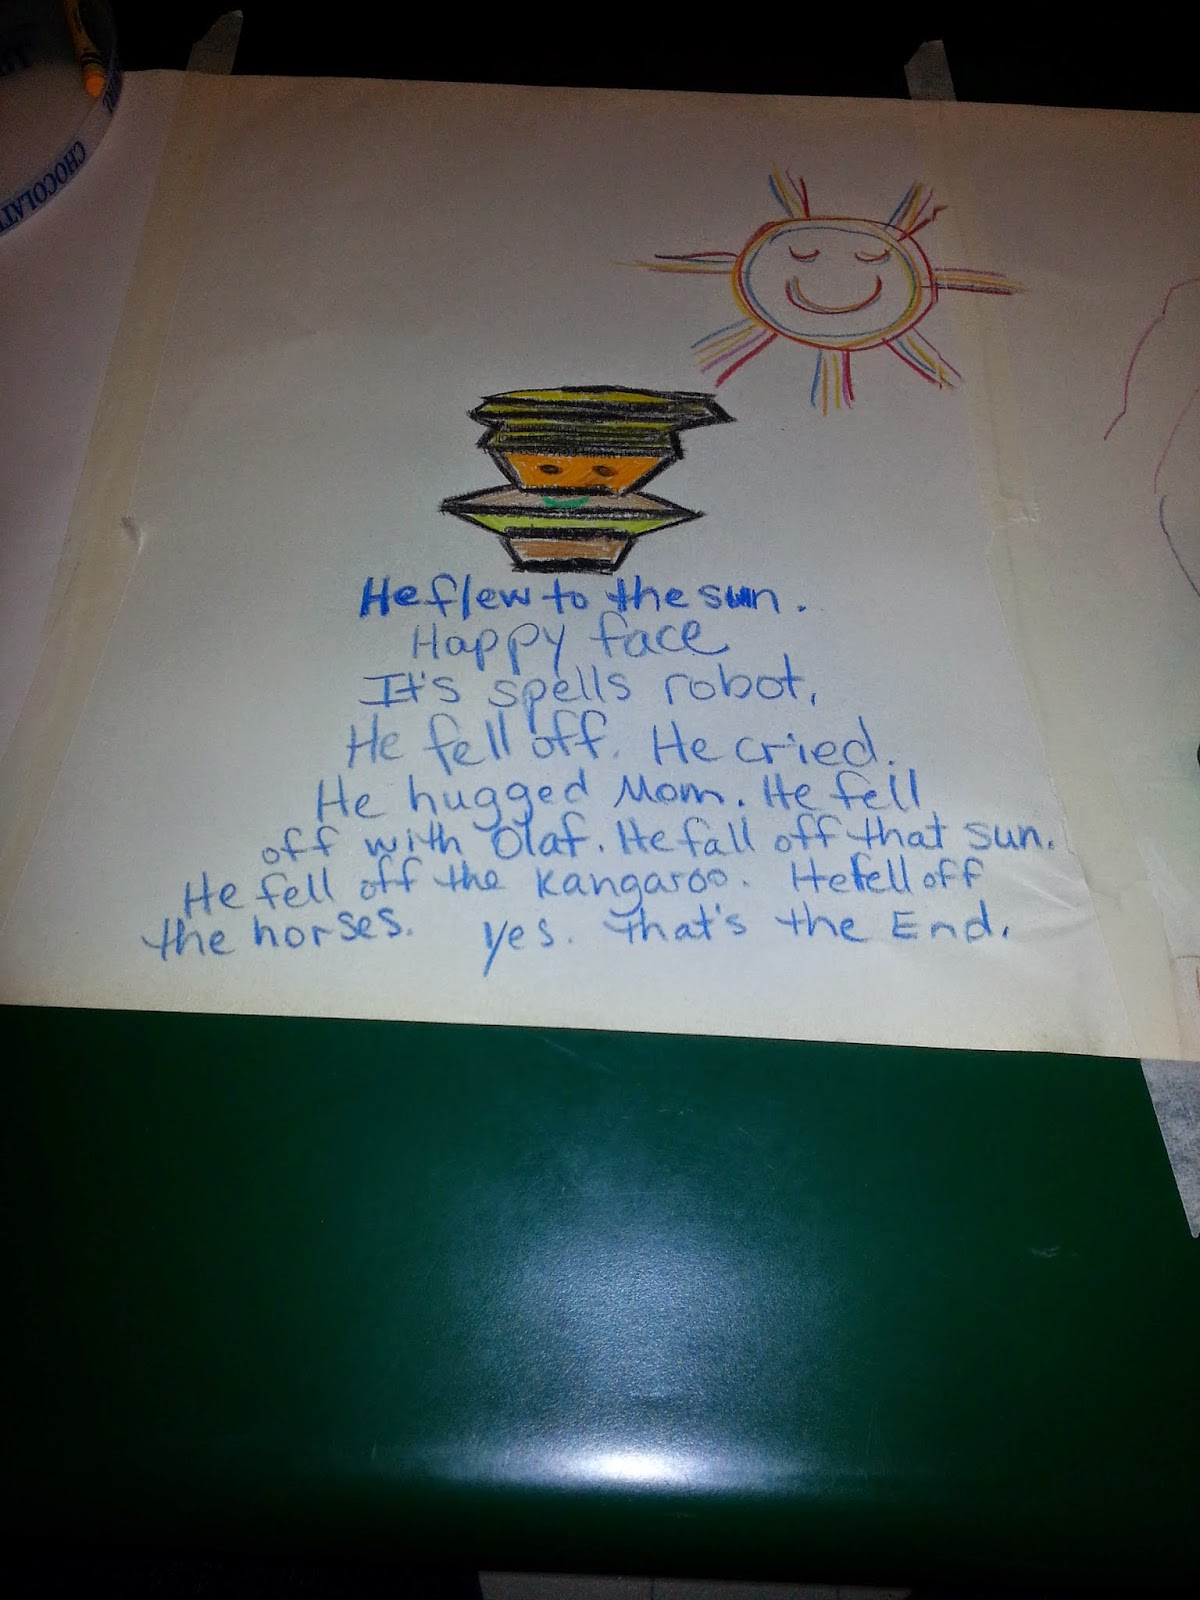 CHOCOLAT
He flew to the sun.
Happy face
It's spells robot,
He fell off. He cried.
He hugged Mom. He fell
off with Olaf. He fall off that sun.
He fell off the kangaroo. He fell off
the horses. Yes. That's the End.